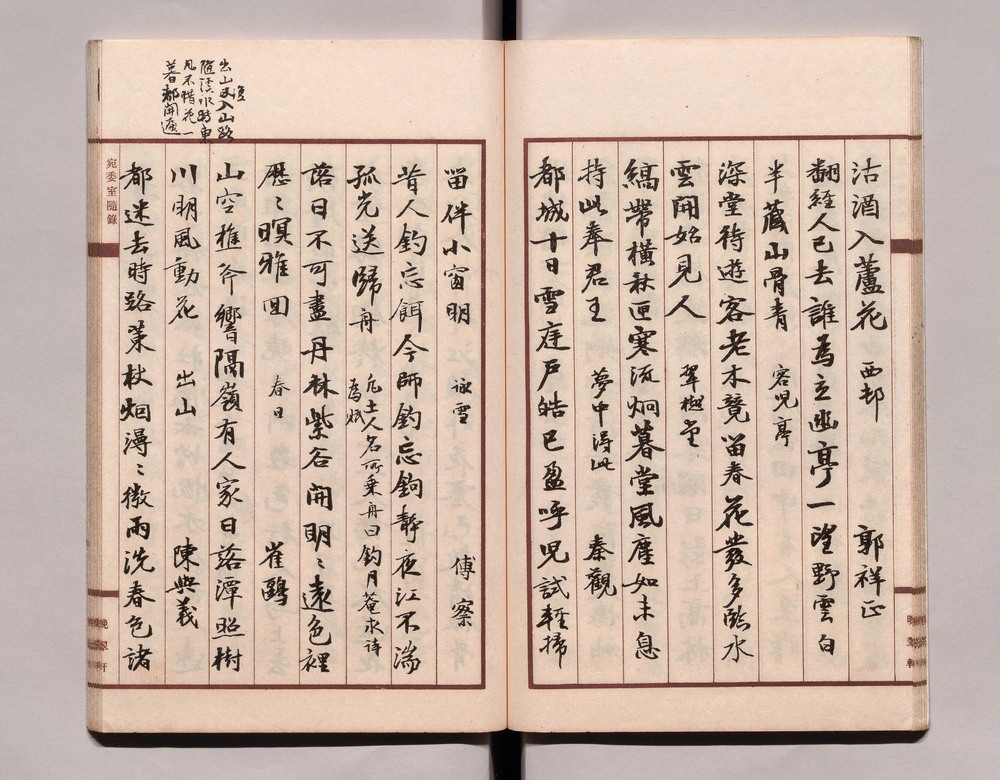 沽酒入蘆花 西邨 郭祥正
翻經人已去誰爲立幽亭一望野雲白
半藏山骨青 容児亭
深堂待遊客老木競留春花發多臨水
雲開始見人 翠樾堂
縞帶橫秋匣寒流炯暮堂風塵如未息
持此奉君王 夢中得此 秦觀
都城十日雪庭戶皓已盈呼児試輕掃
留伴小窗明 詠雪 傅察
昔人釣忘餌今師釣忘鉤靜夜江不湍
孤光送歸舟 危士人名所乘舟曰釣月菴求詩
爲賦
落日不可盡丹林紫谷開明明遠色裡
歷歷暝雅回 春日 崔鶠
山空樵斧響隔嶺有人家日落潭照樹
川明風動花 出山 陳與義
都迷去時路策杖烟漫漫微雨洗春色諸
出山復入山路
隨溪水轉東
風不惜花一
暮都開遍
宛委室隨錄